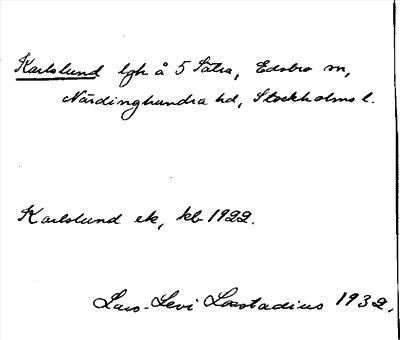 Karlslund lgh å 5 Sätra, Edsbro sn,
Närdinghundra hd, Stockholms l.
Karlslund ek, kb 1922.
Lars-Levi Læstadius 1932.